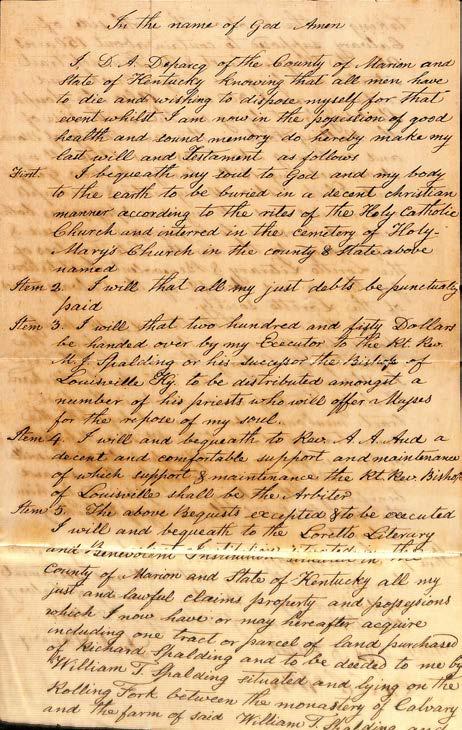 In the name of God Amen
I, D. A. Deparcq of the County of Marion and
State of Kentucky knowing that all men have
to die and wishing to dispose myself for that
event whilst I am now in the possession of good
health and sound memory do hereby make my
last will and Testament as follows
First. I bequeath my soul to God and my body
to the earth to be buried in a decent christian
manner according to the rites of the Holy Catholic
Church and interred in the cemetery of Holy-
Mary's Church in the county & State above
named
Item 2. I will that all my just debts be punctually
paid
Item 3. I will that two hundred and fifty Dollars
be handed over by my Executor to the Rt. Rev.
M. J. Spalding or his successor the Bishop of
Louisville Ky. to be distributed amongst a
number of his priests who will offer Masses
for the repose of my soul.
Item 4. I will and bequeath to Rev. A. A. Aud a
decent and comfortable support and maintenance
of which support & maintenance the Rt. Rev. Bishop
of Louisville shall be the Arbiter
Item 5. The above Bequests excepted & to be executed
I will and bequeath to the Loretto Literary
and Benevolent Institution situated in the
County of Marion and State of Kentucky all my
just and lawful claims property and possessions
which I now have or may hereafter acquire
including one tract or parcel of land purchased
of Richard Spalding and to be deeded to me by
William T. Spalding situated and lying on the
Rolling Fork between the monastery of Calvary
and the farm of said William T. Spalding and